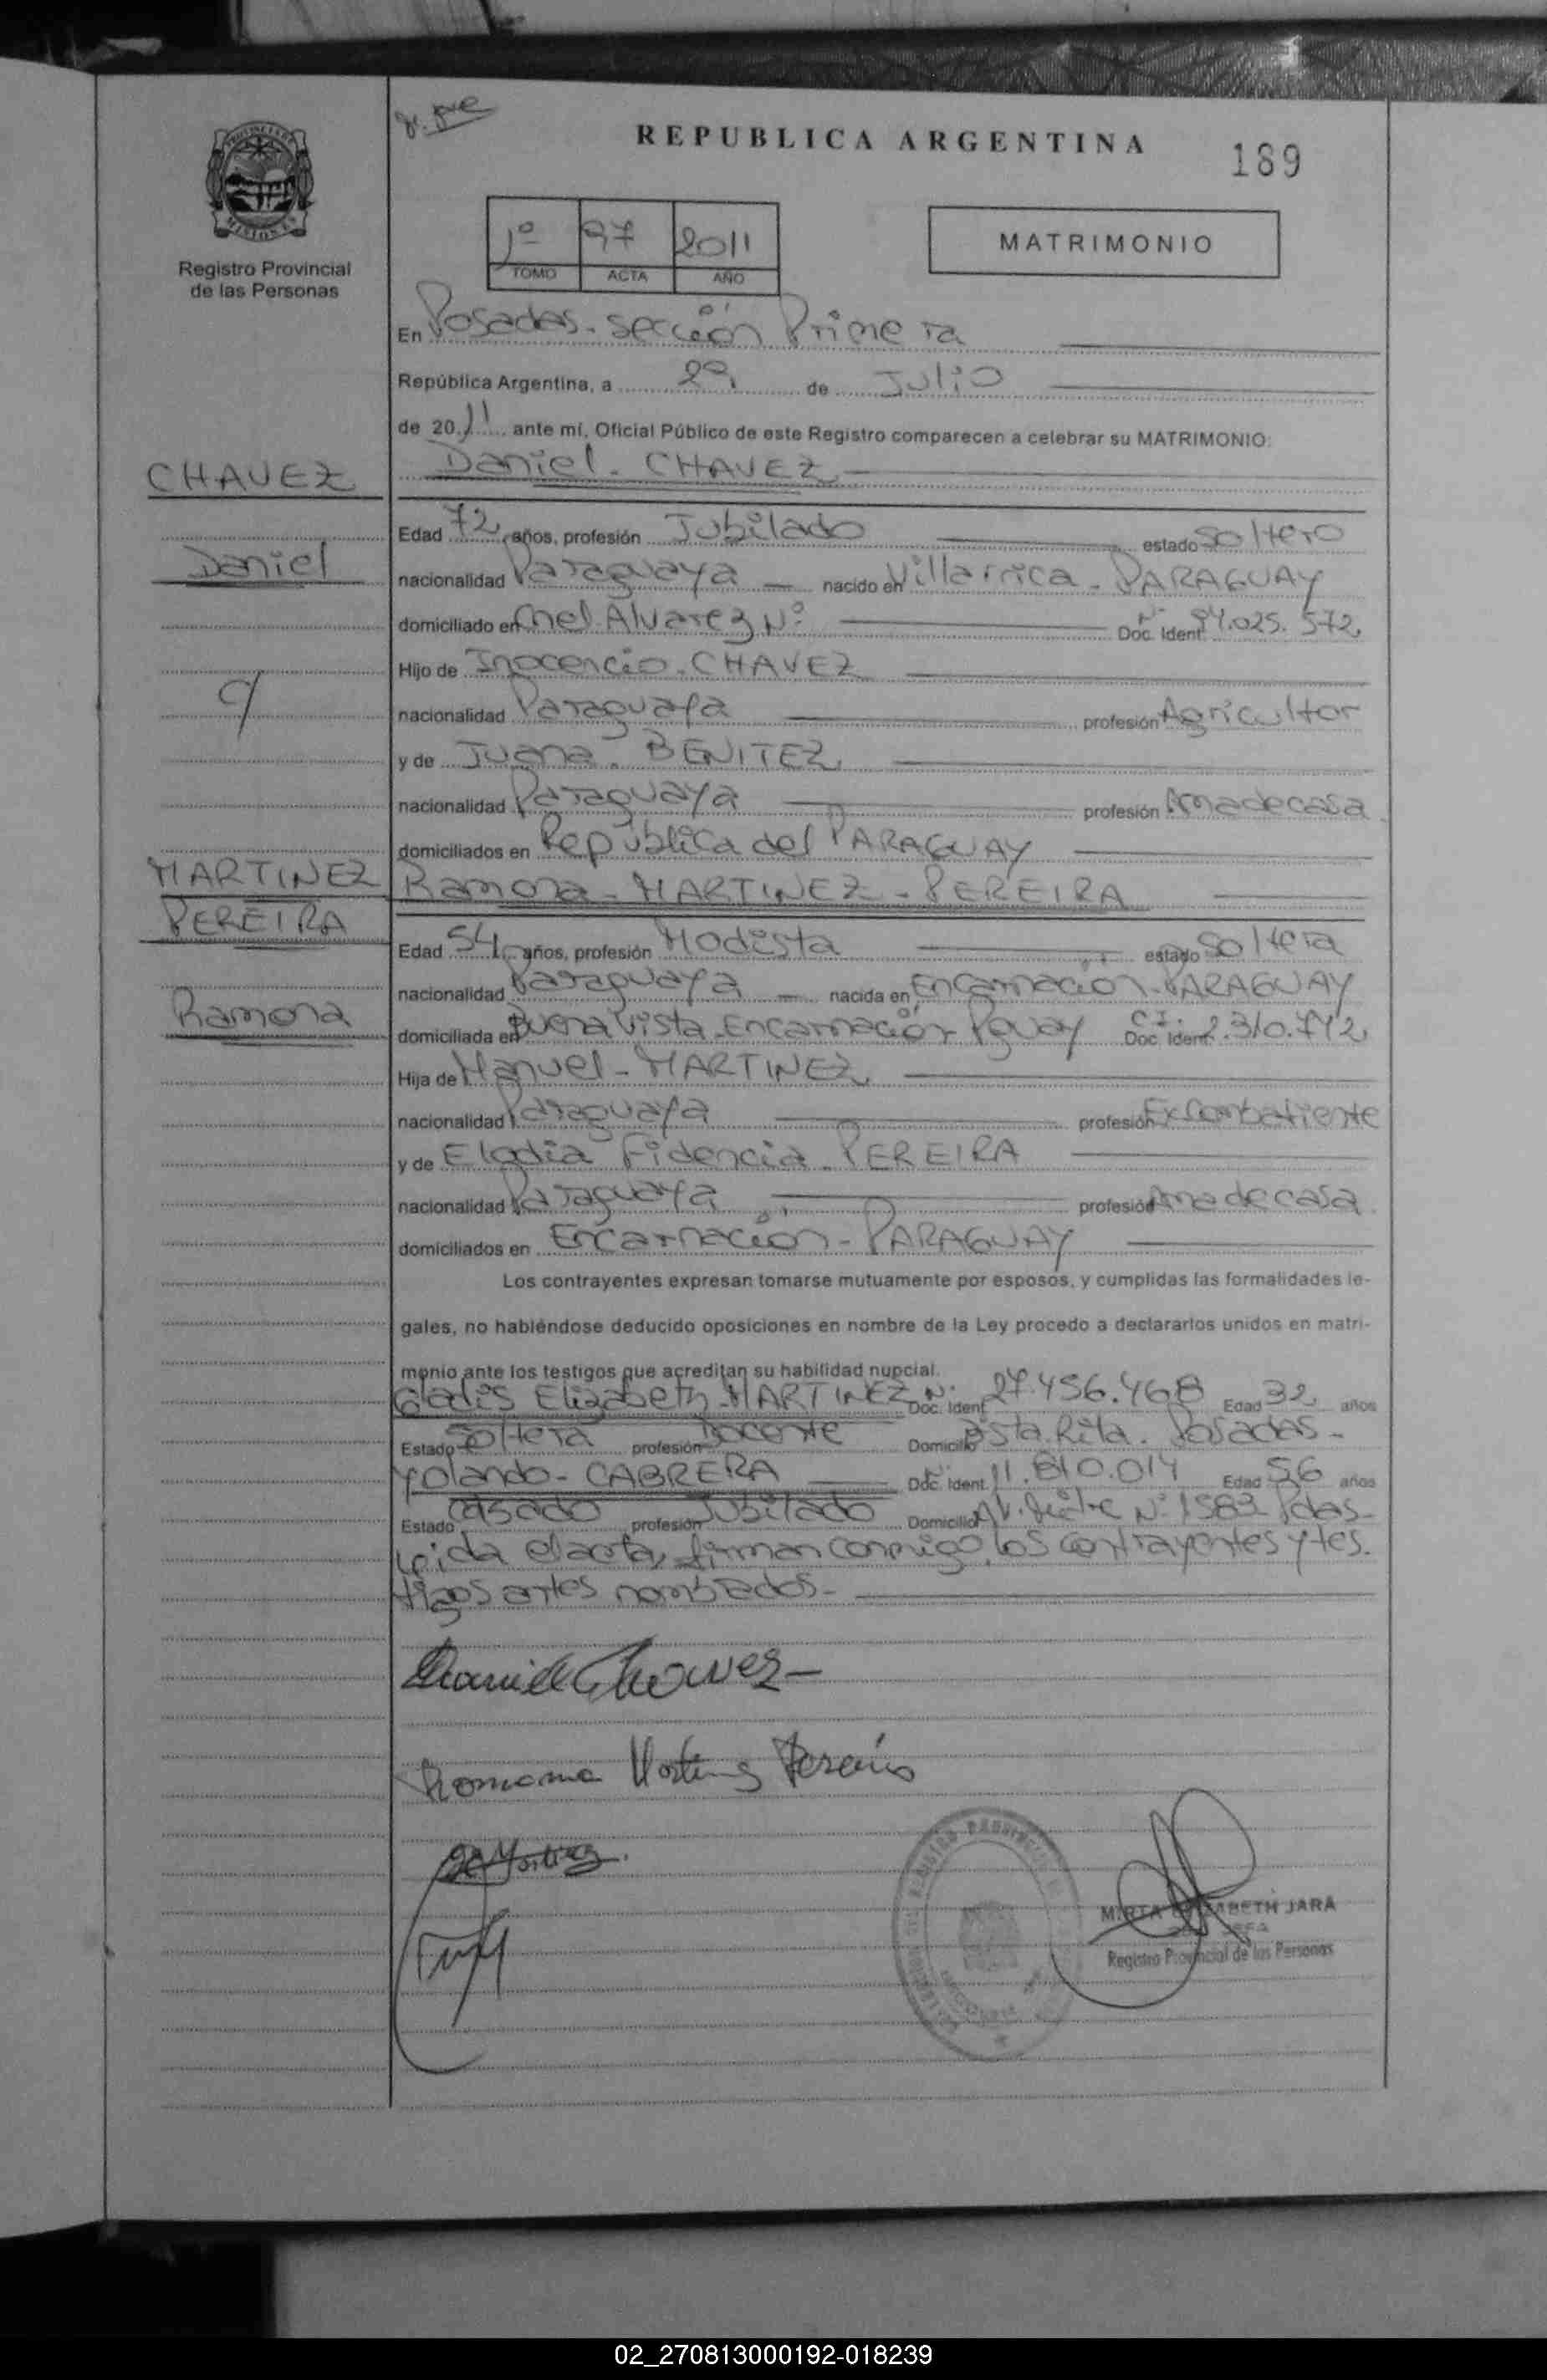 REPUBLICA ARGENTINA
189
Registro Provincial
de las Personas
1º 97 2011
TOMO ACTA AÑO
MATRIMONIO
En Posadas - sección Primera
República Argentina, a 29 de Julio
de 2011 ante mí, Oficial Público de este Registro comparecen a celebrar su MATRIMONIO:
CHAVEZ
Daniel
c/
MARTINEZ
PEREIRA
Ramona
Daniel - CHAVEZ
Edad 72 años, profesión Jubilado estado Soltero
nacionalidad Paraguaya - nacido en Villarrica - PARAGUAY
domiciliado en Cnel. Alvarez Nº Doc. Ident. Nº 94.025.572
Hijo de Inocencio - CHAVEZ
nacionalidad Paraguaya profesión Agricultor
y de Juana - BENITEZ
nacionalidad Paraguaya profesión Ama de casa
domiciliados en República del PARAGUAY
Ramona - MARTINEZ - PEREIRA
Edad 54 años, profesión Modista estado Soltera
nacionalidad Paraguaya - nacida en Encarnación - PARAGUAY
domiciliada en Buena Vista - Encarnación - Pguay C.I. Doc. Ident. 2.310.712
Hija de Manuel - MARTINEZ
nacionalidad Paraguaya profesión Excombatiente
y de Elodia Fidencia - PEREIRA
nacionalidad Paraguaya profesión Ama de casa
domiciliados en Encarnación - PARAGUAY
Los contrayentes expresan tomarse mutuamente por esposos, y cumplidas las formalidades le-
gales, no habiéndose deducido oposiciones en nombre de la Ley procedo a declararlos unidos en matri-
monio ante los testigos que acreditan su habilidad nupcial.
Gladis Elizabeth - MARTINEZ Nº Doc. Ident. 27.456.468 Edad 32 años
Estado Soltera profesión Docente Domicilio Sta. Rita. Posadas -
Yolando - CABRERA Doc. Ident. 11.810.014 Edad 56 años
Estado Casado profesión Jubilado Domicilio Av. Nº 1583 Pdas -
Leida el acta, firman conmigo, los contrayentes y tes.
tigos antes nombrados -
Daniel Chavez -
Ramona Martinez Pereira
Martinez
MIRTA ELIZABETH JARA
JEFA
Registro Provincial de las Personas
02_270813000192-018239